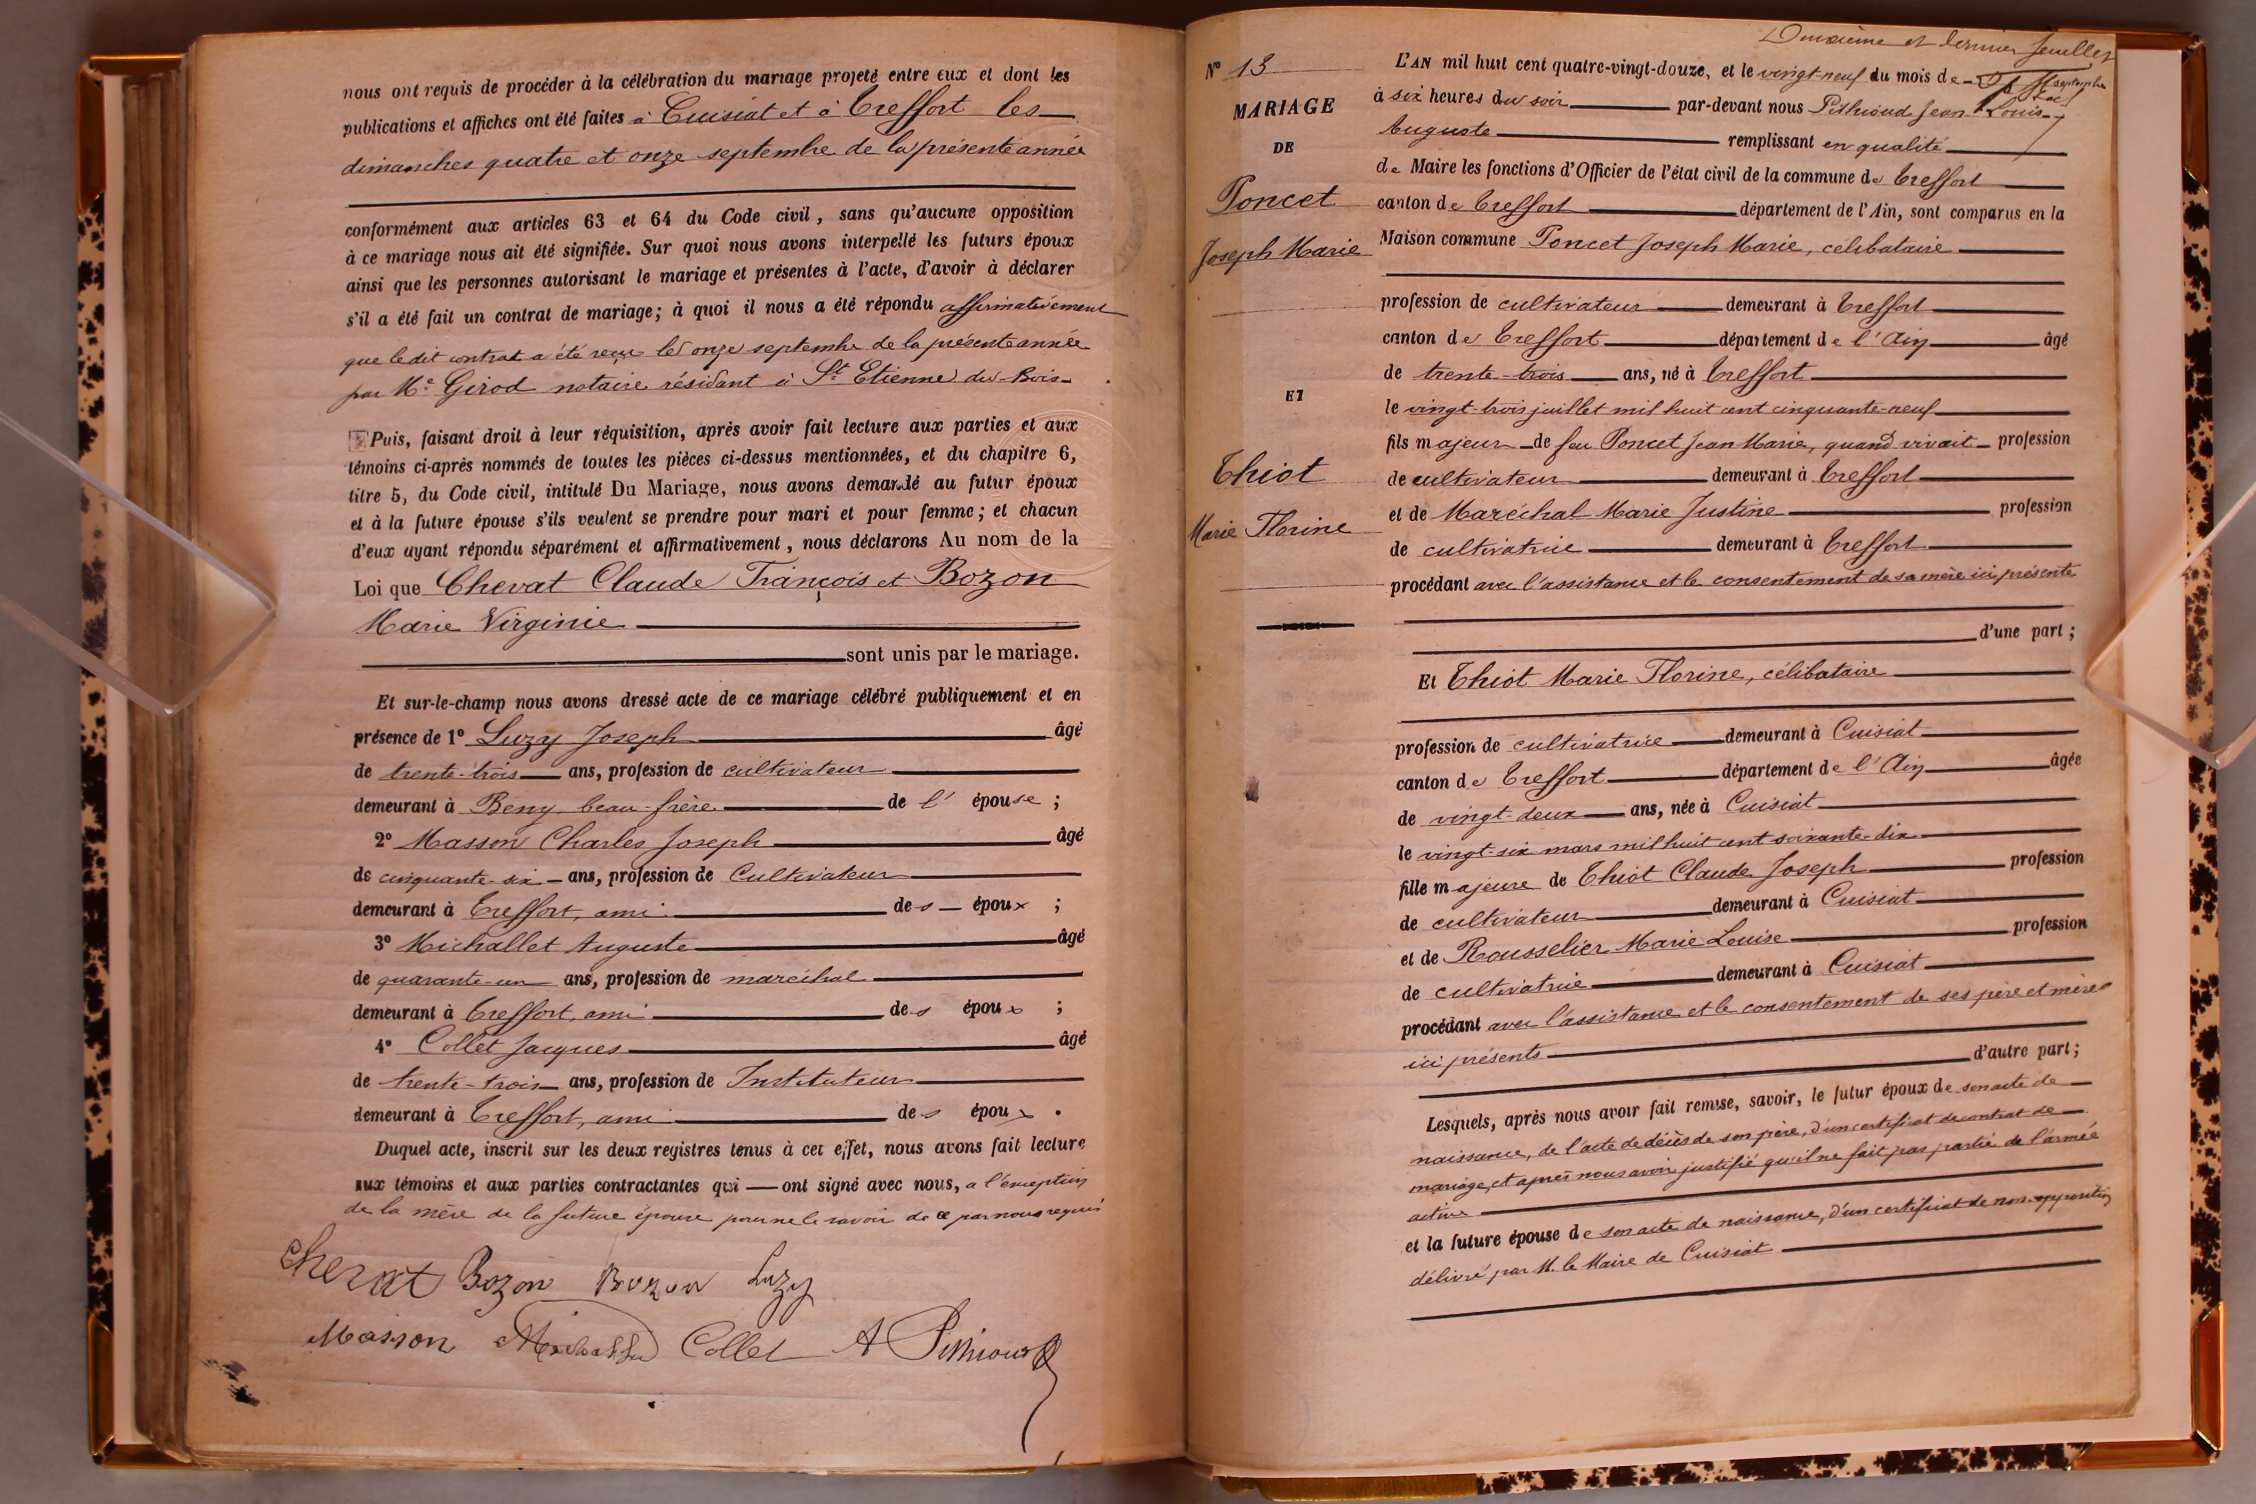 nous ont requis de procéder à la célébration du mariage projeté entre eux et dont les
publications et affiches ont été faites à Cuisiat et à Treffort les
dimanches quatre et onze septembre de la présente année
conformément aux articles 63 et 64 du Code civil, sans qu'aucune opposition
à ce mariage nous ait été signifiée. Sur quoi nous avons interpellé les futurs époux
ainsi que les personnes autorisant le mariage et présentes à l'acte, d'avoir à déclarer
s'il a été fait un contrat de mariage; à quoi il nous a été répondu affirmativement
que le dit contrat a été reçu le onze septembre de la présente année
par Me Girod notaire résidant à St Etienne du Bois
Puis, faisant droit à leur réquisition, après avoir fait lecture aux parties et aux
témoins ci-après nommés de toutes les pièces ci-dessus mentionnées, et du chapitre 6,
titre 5, du Code civil, intitulé Du Mariage, nous avons demandé au futur époux
et à la future épouse s'ils veulent se prendre pour mari et pour femme; et chacun
d'eux ayant répondu séparément et affirmativement, nous déclarons Au nom de la
Loi que Chevat Claude François et Bozon
Marie Virginie
sont unis par le mariage.
Et sur-le-champ nous avons dressé acte de ce mariage célébré publiquement et en
présence de 1º Luzy Joseph âgé
de trente-trois ans, profession de cultivateur
demeurant à Beny, beau-frère de l' épouse ;
2º Masson Charles Joseph âgé
de cinquante-six ans, profession de Cultivateur
demeurant à Treffort, ami des époux ;
3º Michallet Auguste âgé
de quarante-un ans, profession de maréchal
demeurant à Treffort, ami des époux ;
4º Collet Jacques âgé
de trente-trois ans, profession de Instituteur
demeurant à Treffort, ami des époux .
Duquel acte, inscrit sur les deux registres tenus à cet effet, nous avons fait lecture
aux témoins et aux parties contractantes qui ont signé avec nous, a l'exception
de la mère de la future épouse pour ne le savoir de ce par nous requis
Chevat Bozon Bozon Luzy
Masson Michallet Collet A Pithioud
Deuxième et dernier feuillet
Nº 13
MARIAGE
DE
Poncet
Joseph Marie
ET
Thiot
Marie Florine
L'AN mil huit cent quatre-vingt-douze, et le vingt-neuf du mois de septembre
à six heures du soir par-devant nous Pithioud Jean Louis
Auguste remplissant en qualité
de Maire les fonctions d'Officier de l'état civil de la commune de Treffort
canton de Treffort département de l'Ain, sont comparus en la
Maison commune Poncet Joseph Marie, célibataire
profession de cultivateur demeurant à Treffort
canton de Treffort département de l'Ain âgé
de trente-trois ans, né à Treffort
le vingt-trois juillet mil huit cent cinquante-neuf
fils majeur de feu Poncet Jean Marie, quand vivait profession
de cultivateur demeurant à Treffort
et de Maréchal Marie Justine profession
de cultivatrice demeurant à Treffort
procédant avec l'assistance et le consentement de sa mère ici présente
d'une part ;
Et Thiot Marie Florine, célibataire
profession de cultivatrice demeurant à Cuisiat
canton de Treffort département de l'Ain âgée
de vingt-deux ans, née à Cuisiat
le vingt-six mars mil huit cent soixante-dix
fille majeure de Thiot Claude Joseph profession
de cultivateur demeurant à Cuisiat
et de Rousselier Marie Louise profession
de cultivatrice demeurant à Cuisiat
procédant avec l'assistance et le consentement de ses père et mère
ici présents d'autre part ;
Lesquels, après nous avoir fait remise, savoir, le futur époux de son acte de
naissance, de l'acte de décès de son père, d'un certificat de contrat de
mariage, et après nous avoir justifié qu'il ne fait pas partie de l'armée
active
et la future épouse de son acte de naissance, d'un certificat de non-opposition
délivré par M. le Maire de Cuisiat